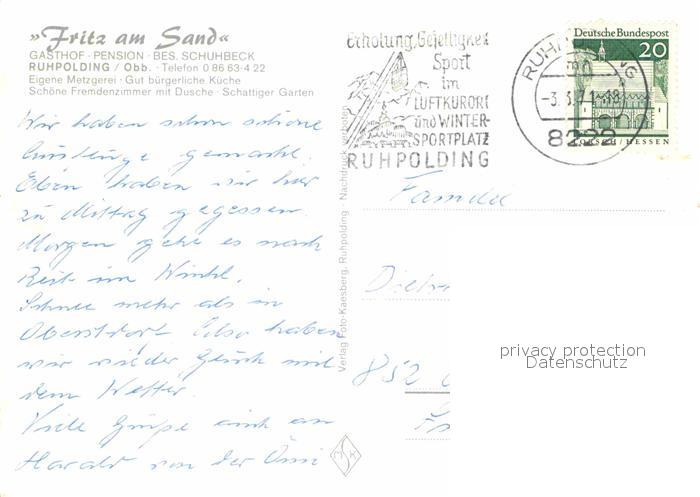 »Fritz am Sand«
GASTHOF · PENSION · BES. SCHUHBECK
RUHPOLDING / Obb. · Telefon 0 86 63-4 22
Eigene Metzgerei · Gut bürgerliche Küche
Schöne Fremdenzimmer mit Dusche · Schattiger Garten
Wir haben schon schöne
Ausflüge gemacht.
Eben haben wir hier
zu Mittag gegessen.
Morgen geht es nach
Reit im Winkl.
Schnee mehr als in
Oberstdorf. Also haben
wir wieder Glück mit
dem Wetter.
Viele Grüße auch an
Harald von der Omi
Verlag Foto-Kaesberg, Ruhpolding · Nachdruck verboten
Erholung, Geselligkeit
Sport
im
LUFTKURORT
und WINTER-
SPORTPLATZ
RUHPOLDING
RUHPOLDING
-3.3.71-18
8222
Deutsche Bundespost
20
LORSCH/HESSEN
Familie
852
privacy protection
Datenschutz